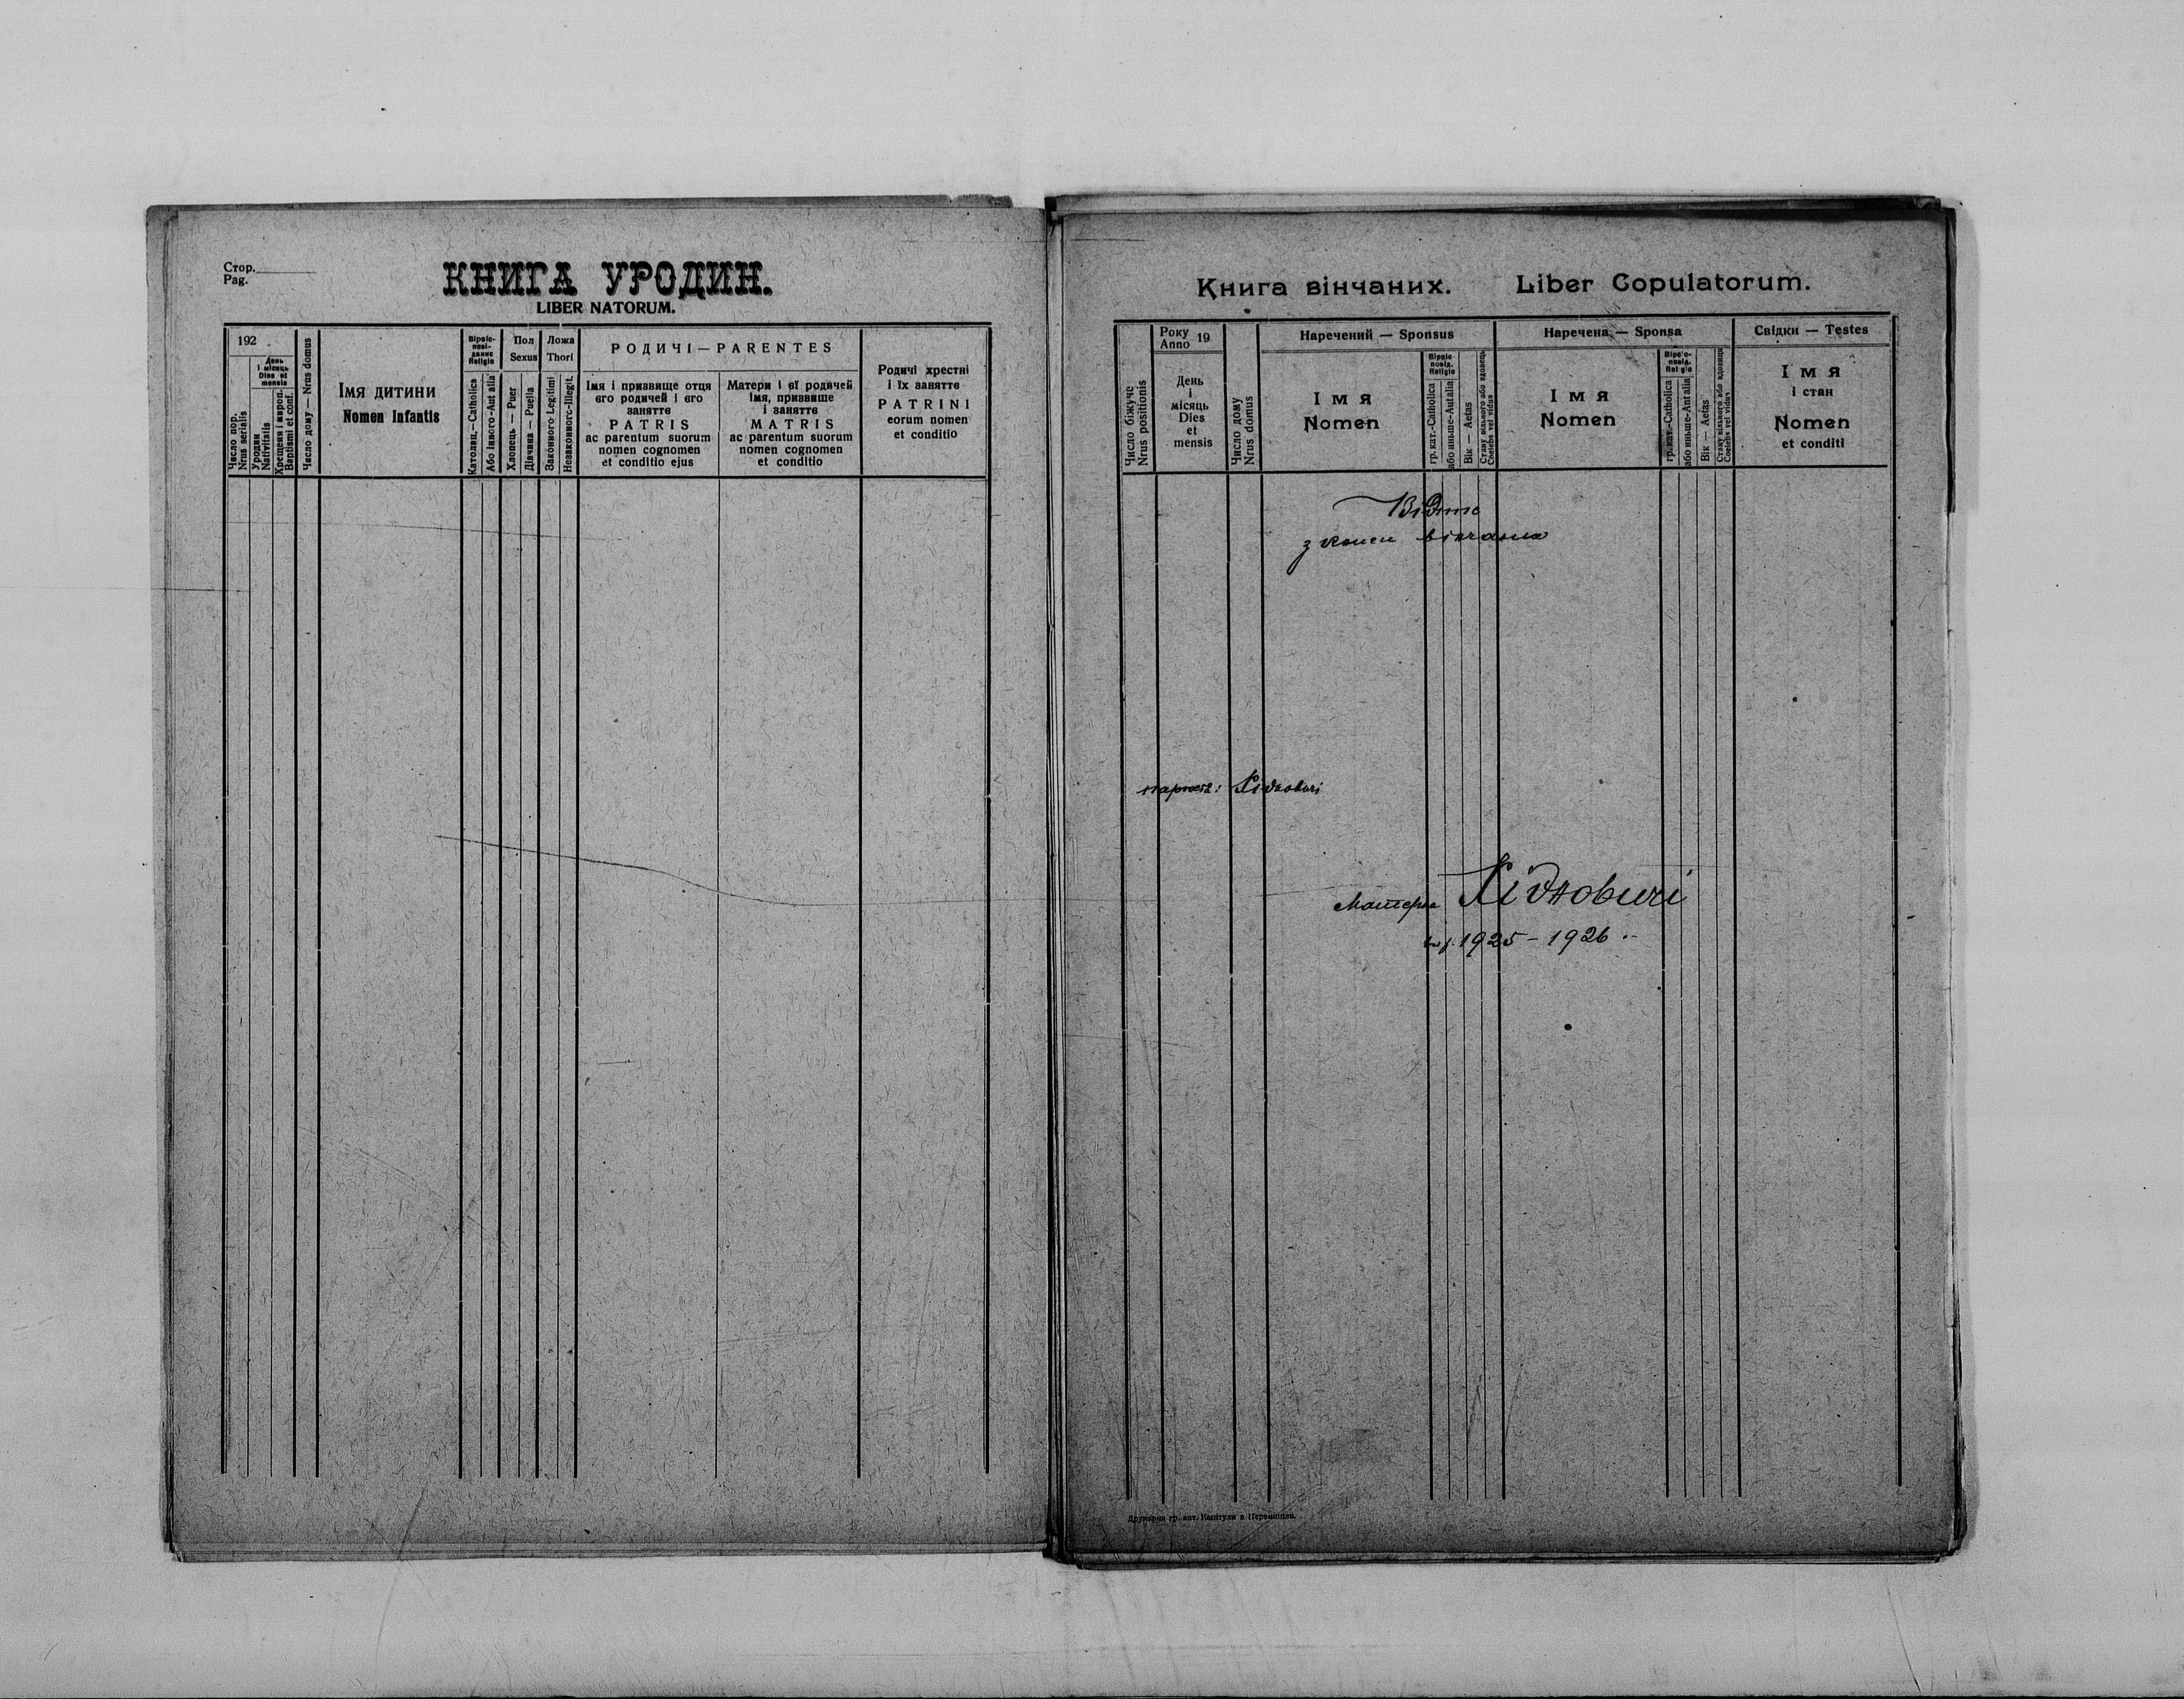 Стор.
Pag.
КНИГА УРОДИН.
LIBER NATORUM.
192
День і місяць Dies et mensis
Число пор. Nrus serialis
Уродин Nativitatis
Хрещеня і мироп. Baptismi et conf.
Число дому — Nrus domus
Імя дитини
Nomen Infantis
Віроіс-
пові-
данне
Religio
Католиц.—Catholica
Або іншого—Aut alia
Пол
Sexus
Хлопець — Puer
Дівчина — Puella
Ложа
Thori
Законного Legitimi
Незаконного-Illegit.
РОДИЧІ — PARENTES
Імя і призвище отця
єго родичей і єго
заняттє
PATRIS
ac parentum suorum
nomen cognomen
et conditio ejus
Матери і єї родичей
Імя, призвище
і заняттє
MATRIS
ac parentum suorum
nomen cognomen
et conditio
Родичі хрестні
і їх заняттє
PATRINI
eorum nomen
et conditio
Книга вінчаних. Liber Copulatorum.
Число біжуче
Nrus positionis
Року
Anno 19
День
і
місяць
Dies
et
mensis
Число дому
Nrus domus
Наречений — Sponsus
Імя
Nomen
Віроіс-
повід.
Religio
гр. кат.-Catholica
або иньше-Aut alia
Вік — Aetas
Стану вільного або вдовець
Coelebs vel viduus
Наречена — Sponsa
Імя
Nomen
Віроіс-
повід.
Religio
гр. кат.-Catholica
або иньше-Aut alia
Вік — Aetas
Стану вільного або вдовиця
Свідки — Testes
Імя
і стан
Nomen
et conditi
вінчаня
Хідновичі
Матерня Хідновичі
1925 - 1926
Друкарня гр. кат. Капітули в Перемишли.